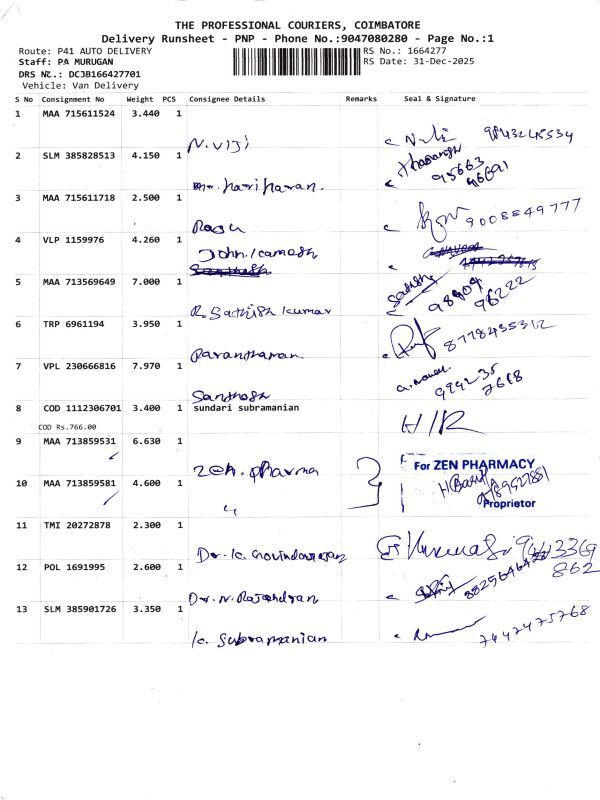 THE PROFESSIONAL COURIERS, COIMBATORE
Delivery Runsheet - PNP - Phone No.:9047080280 - Page No.:1
Route: P41 AUTO DELIVERY RS No.: 1664277
Staff: PA MURUGAN RS Date: 31-Dec-2025
DRS NZ.: DC3B166427701
Vehicle: Van Delivery
S No Consignment No Weight PCS Consignee Details Remarks Seal & Signature
1 MAA 715611524 3.440 1
N.VIJI 9843245534
2 SLM 385828513 4.150 1
Mr. hariharan. 95663 96691
3 MAA 715611718 2.500 1
Raghu
4 VLP 1159976 4.260 1
John. kamesh
5 MAA 713569649 7.000 1
R. Sathish kumar 98409 96222
6 TRP 6961194 3.950 1
Paranthaman. 8778435312
7 VPL 230666816 7.970 1
Santhosh
8 COD 1112306701 3.400 1 sundari subramanian
COD Rs.766.00 H/R
9 MAA 713859531 6.630 1
Zen. pharma For ZEN PHARMACY
10 MAA 713859581 4.600 1
〃 Proprietor
11 TMI 20272878 2.300 1
Dr. K. Govindarajan
12 POL 1691995 2.600 1
Dr. N. Rajendran
13 SLM 385901726 3.350 1
K. Subramanian 7447475768